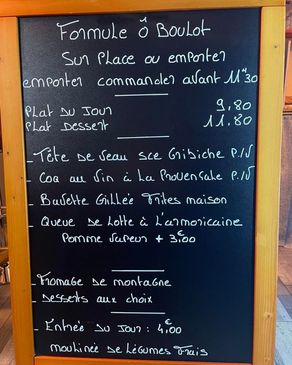 Formule Ô Boulot
Sur Place ou emporter
emporter commander avant 11"30
Plat du Jour 9,80
Plat Dessert 11,80
- Tête de veau sce Gribiche P.N
- Coq au vin à la Provençale P.N
- Bavette Grillée Frites maison
- Queue de Lotte à L'armoricaine
Pomme vapeur + 3€00
- Fromage de montagne
- Desserts aux choix
- Entrée du Jour : 4€00
moulinée de légumes Frais